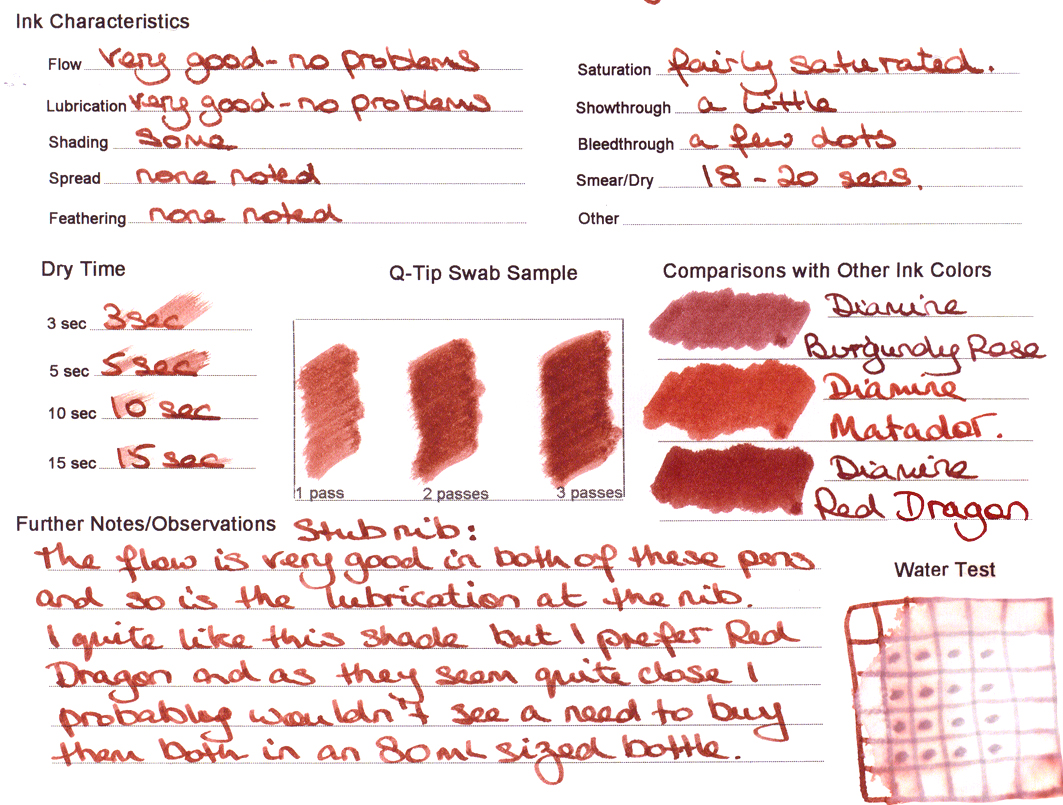 Ink Characteristics
Flow very good - no problems
Saturation fairly saturated.
Lubrication very good - no problems
Showthrough a little
Shading some
Bleedthrough a few dots
Spread none noted
Smear/Dry 18 - 20 secs.
Feathering none noted
Other
Dry Time
3 sec 3 sec
5 sec 5 sec
10 sec 10 sec
15 sec 15 sec
Q-Tip Swab Sample
1 pass 2 passes 3 passes
Comparisons with Other Ink Colors
Diamine
Burgundy Rose
Diamine
Matador.
Diamine
Red Dragon
Further Notes/Observations Stub nib:
The flow is very good in both of these pens
and so is the lubrication at the nib.
I quite like this shade but I prefer Red
Dragon and as they seem quite close I
probably wouldn't see a need to buy
them both in an 80ml sized bottle.
Water Test